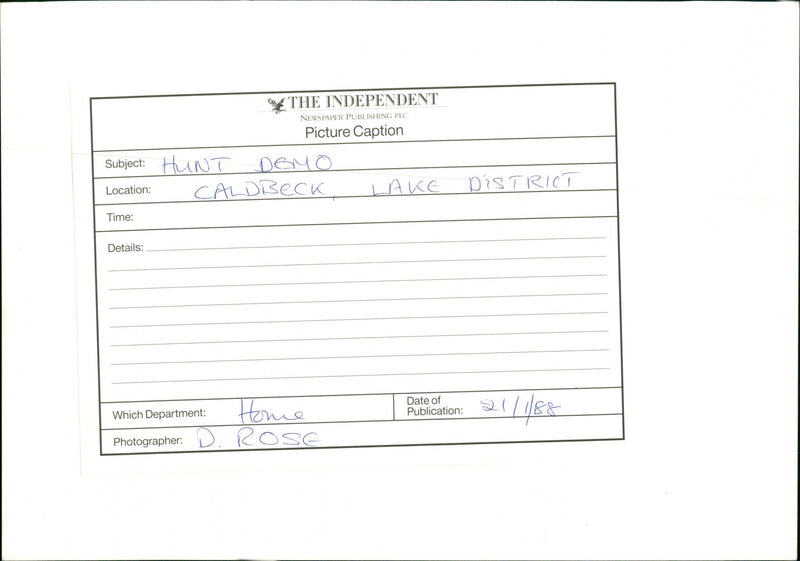 THE INDEPENDENT
NEWSPAPER PUBLISHING PLC
Picture Caption
Subject: HUNT DEMO
Location: CALDBECK, LAKE DISTRICT
Time:
Details:
Which Department: Home
Date of Publication: 21/1/88
Photographer: D. ROSE